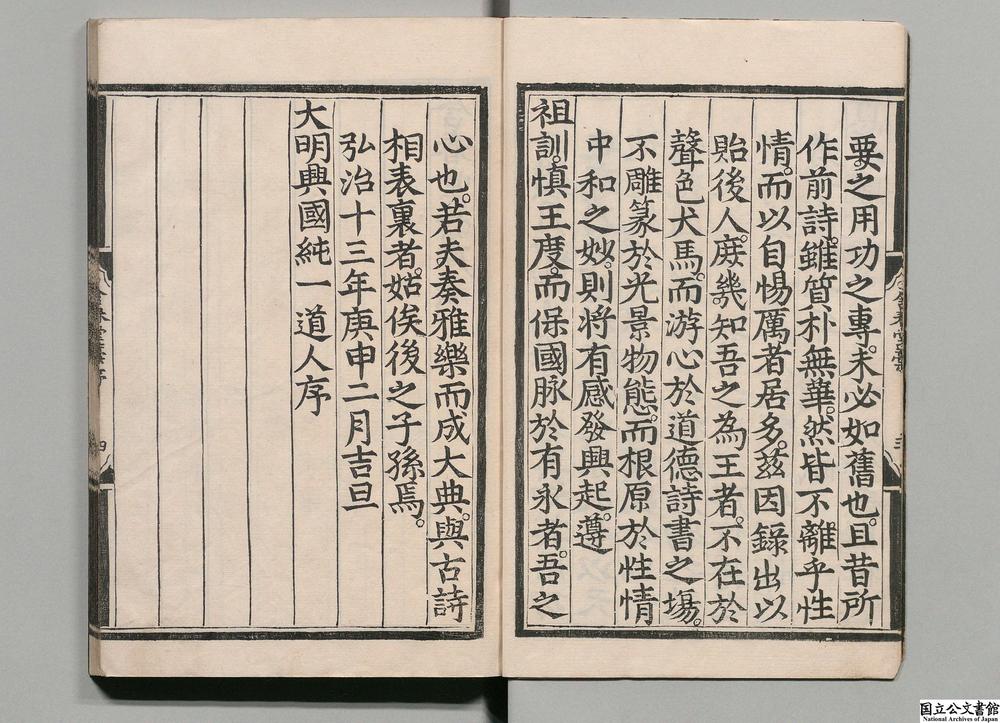 要之用功之專。未必如舊也。且昔所
作前詩。雖質朴無華。然皆不離乎性
情。而以自惕厲者居多。茲因錄出以
貽後人。庶幾知吾之為王者。不在於
聲色犬馬。而游心於道德詩書之場。
不雕篆於光景物態。而根原於性情
中和之妙。則將有感發興起。遵
祖訓。慎王度。而保國脉於有永者。吾之
心也。若夫奏雅樂而成大典。與古詩
相表裏者。姑俟後之子孫焉。
弘治十三年庚申二月吉旦
大明興國純一道人序
国立公文書館
National Archives of Japan